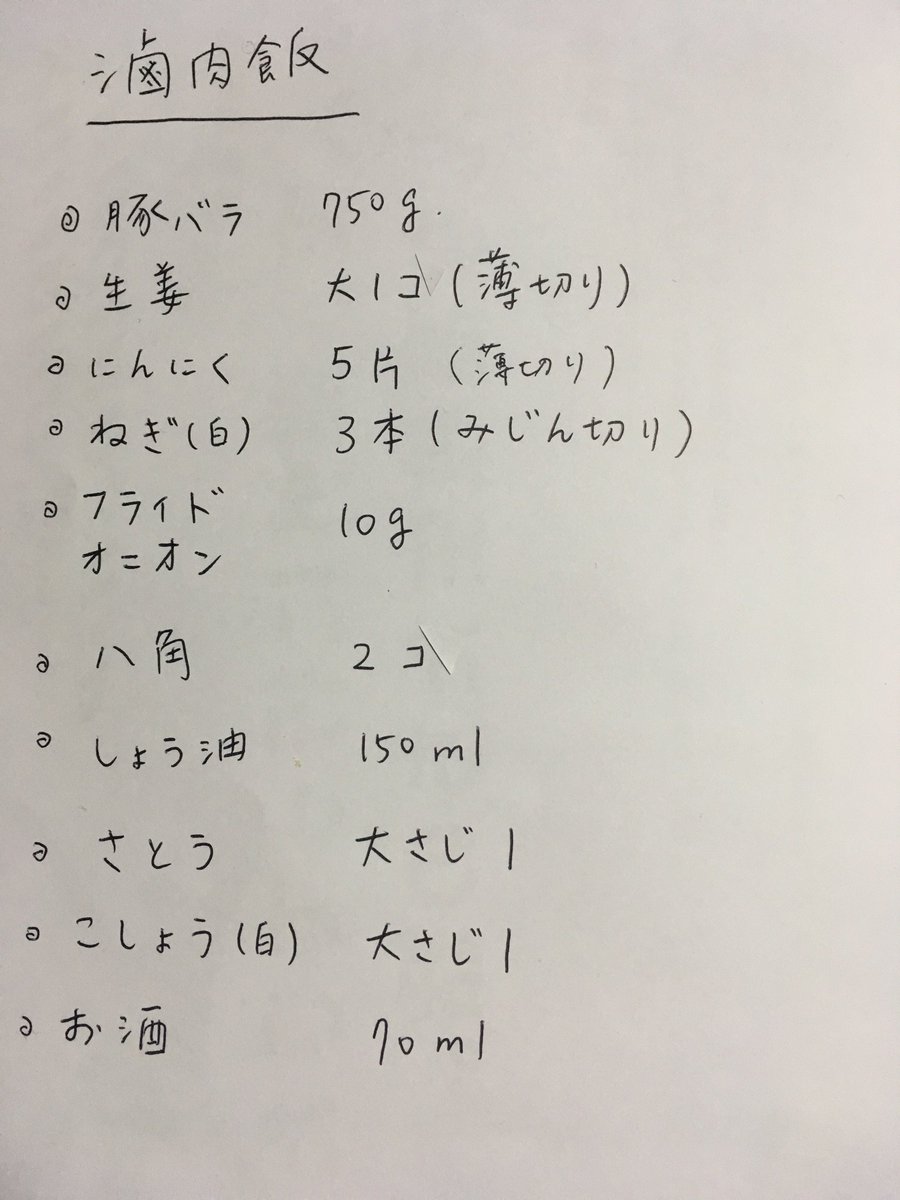 滷肉飯
豚バラ 750g.
生姜 大1コ(薄切り)
にんにく 5片 (薄切り)
ねぎ(白) 3本(みじん切り)
フライド
オニオン 10g
八角 2コ
しょう油 150ml
さとう 大さじ1
こしょう(白) 大さじ1
お酒 70ml